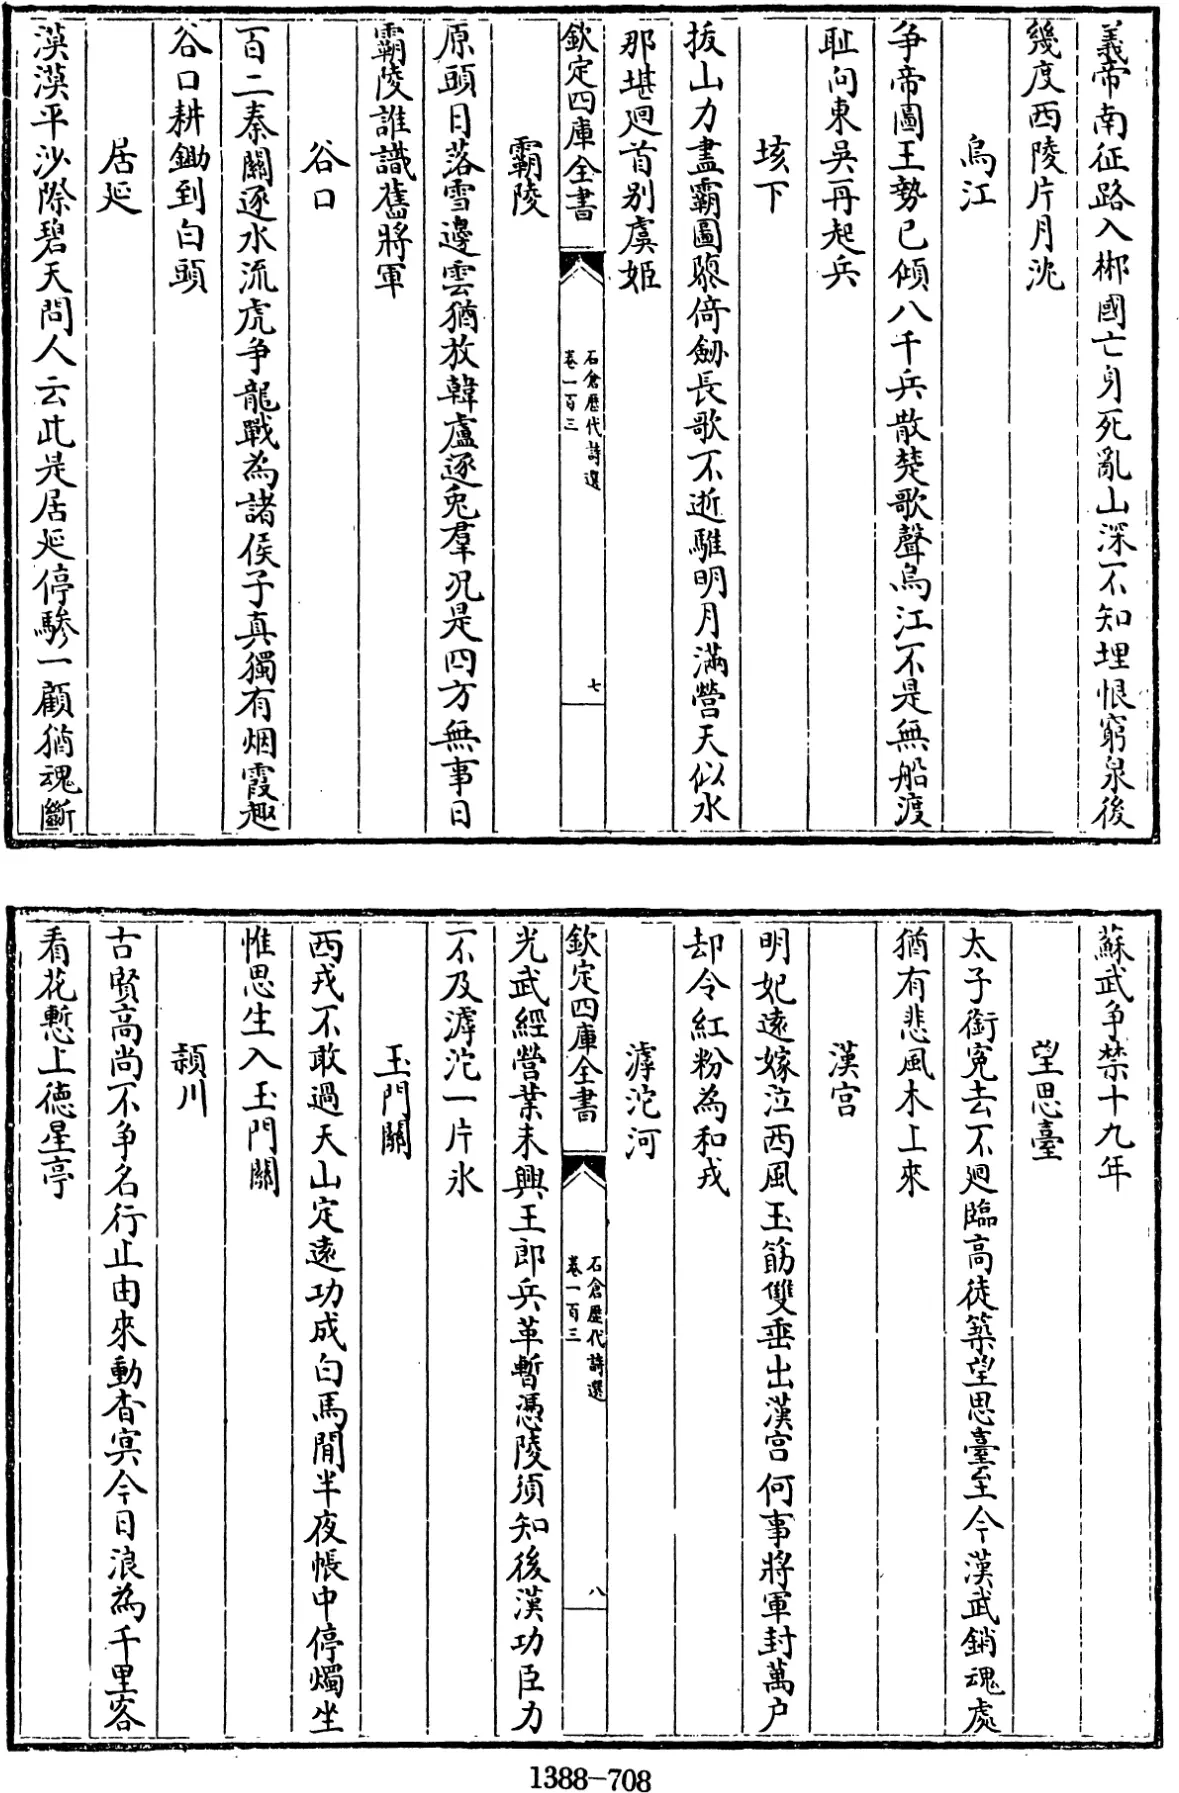 義帝南征路入郴國亡身死亂山深不知埋恨窮泉後
幾度西陵片月沈
烏江
爭帝圖王勢已傾八千兵散楚歌聲烏江不是無船渡
耻向東吳再起兵
垓下
拔山力盡霸圖隳倚劒長歌不逝騅明月滿營天似水
那堪廻首别虞姬
欽定四庫全書
石倉歷代詩選
卷一百三
七
霸陵
原頭日落雪邊雲猶放韓盧逐兎羣况是四方無事日
霸陵誰識舊將軍
谷口
百二秦關逐水流虎爭龍戰為諸侯子真獨有烟霞趣
谷口耕鋤到白頭
居延
漠漠平沙際碧天問人云此是居延停驂一顧猶魂斷
蘇武爭禁十九年
望思臺
太子銜寃去不廻臨高徒築望思臺至今漢武銷魂處
猶有悲風木上來
漢宫
明妃遠嫁泣西風玉筯雙垂出漢宫何事將軍封萬户
却令紅粉為和戎
滹沱河
欽定四庫全書
石倉歷代詩選
卷一百三
八
光武經營業未興王郎兵革暫憑陵須知後漢功臣力
不及滹沱一片氷
玉門關
西戎不敢過天山定遠功成白馬閒半夜帳中停燭坐
惟思生入玉門關
潁川
古賢高尚不爭名行止由來動杳冥今日浪為千里客
看花慙上德星亭
1388-708